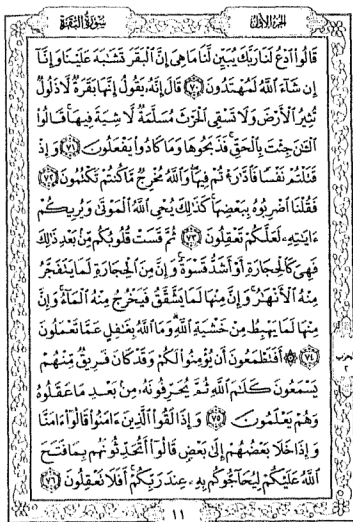 الجزء الأول
سورة البقرة
قَالُوا۟ ٱدْعُ لَنَا رَبَّكَ يُبَيِّن لَّنَا مَا هِىَ إِنَّ ٱلْبَقَرَ تَشَٰبَهَ عَلَيْنَا وَإِنَّآ
إِن شَآءَ ٱللَّهُ لَمُهْتَدُونَ ٧٠ قَالَ إِنَّهُۥ يَقُولُ إِنَّهَا بَقَرَةٌ لَّا ذَلُولٌ
تُثِيرُ ٱلْأَرْضَ وَلَا تَسْقِى ٱلْحَرْثَ مُسَلَّمَةٌ لَّا شِيَةَ فِيهَا قَالُوا۟
ٱلْـَٰٔنَ جِئْتَ بِٱلْحَقِّ فَذَبَحُوهَا وَمَا كَادُوا۟ يَفْعَلُونَ ٧١ وَإِذْ
قَتَلْتُمْ نَفْسًا فَٱدَّٰرَْٰٔتُمْ فِيهَا وَٱللَّهُ مُخْرِجٌ مَّا كُنتُمْ تَكْتُمُونَ ٧٢
فَقُلْنَا ٱضْرِبُوهُ بِبَعْضِهَا كَذَٰلِكَ يُحْىِ ٱللَّهُ ٱلْمَوْتَىٰ وَيُرِيكُمْ
ءَايَٰتِهِۦ لَعَلَّكُمْ تَعْقِلُونَ ٧٣ ثُمَّ قَسَتْ قُلُوبُكُم مِّنۢ بَعْدِ ذَٰلِكَ
فَهِىَ كَٱلْحِجَارَةِ أَوْ أَشَدُّ قَسْوَةً وَإِنَّ مِنَ ٱلْحِجَارَةِ لَمَا يَتَفَجَّرُ
مِنْهُ ٱلْأَنْهَٰرُ وَإِنَّ مِنْهَا لَمَا يَشَّقَّقُ فَيَخْرُجُ مِنْهُ ٱلْمَآءُ وَإِنَّ
مِنْهَا لَمَا يَهْبِطُ مِنْ خَشْيَةِ ٱللَّهِ وَمَا ٱللَّهُ بِغَٰفِلٍ عَمَّا تَعْمَلُونَ
٧٤ ۞ أَفَتَطْمَعُونَ أَن يُؤْمِنُوا۟ لَكُمْ وَقَدْ كَانَ فَرِيقٌ مِّنْهُمْ
حزب ٢
يَسْمَعُونَ كَلَٰمَ ٱللَّهِ ثُمَّ يُحَرِّفُونَهُۥ مِنۢ بَعْدِ مَا عَقَلُوهُ
وَهُمْ يَعْلَمُونَ ٧٥ وَإِذَا لَقُوا۟ ٱلَّذِينَ ءَامَنُوا۟ قَالُوٓا۟ ءَامَنَّا
وَإِذَا خَلَا بَعْضُهُمْ إِلَىٰ بَعْضٍ قَالُوٓا۟ أَتُحَدِّثُونَهُم بِمَا فَتَحَ
ٱللَّهُ عَلَيْكُمْ لِيُحَآجُّوكُم بِهِۦ عِندَ رَبِّكُمْ أَفَلَا تَعْقِلُونَ ٧٦
١١